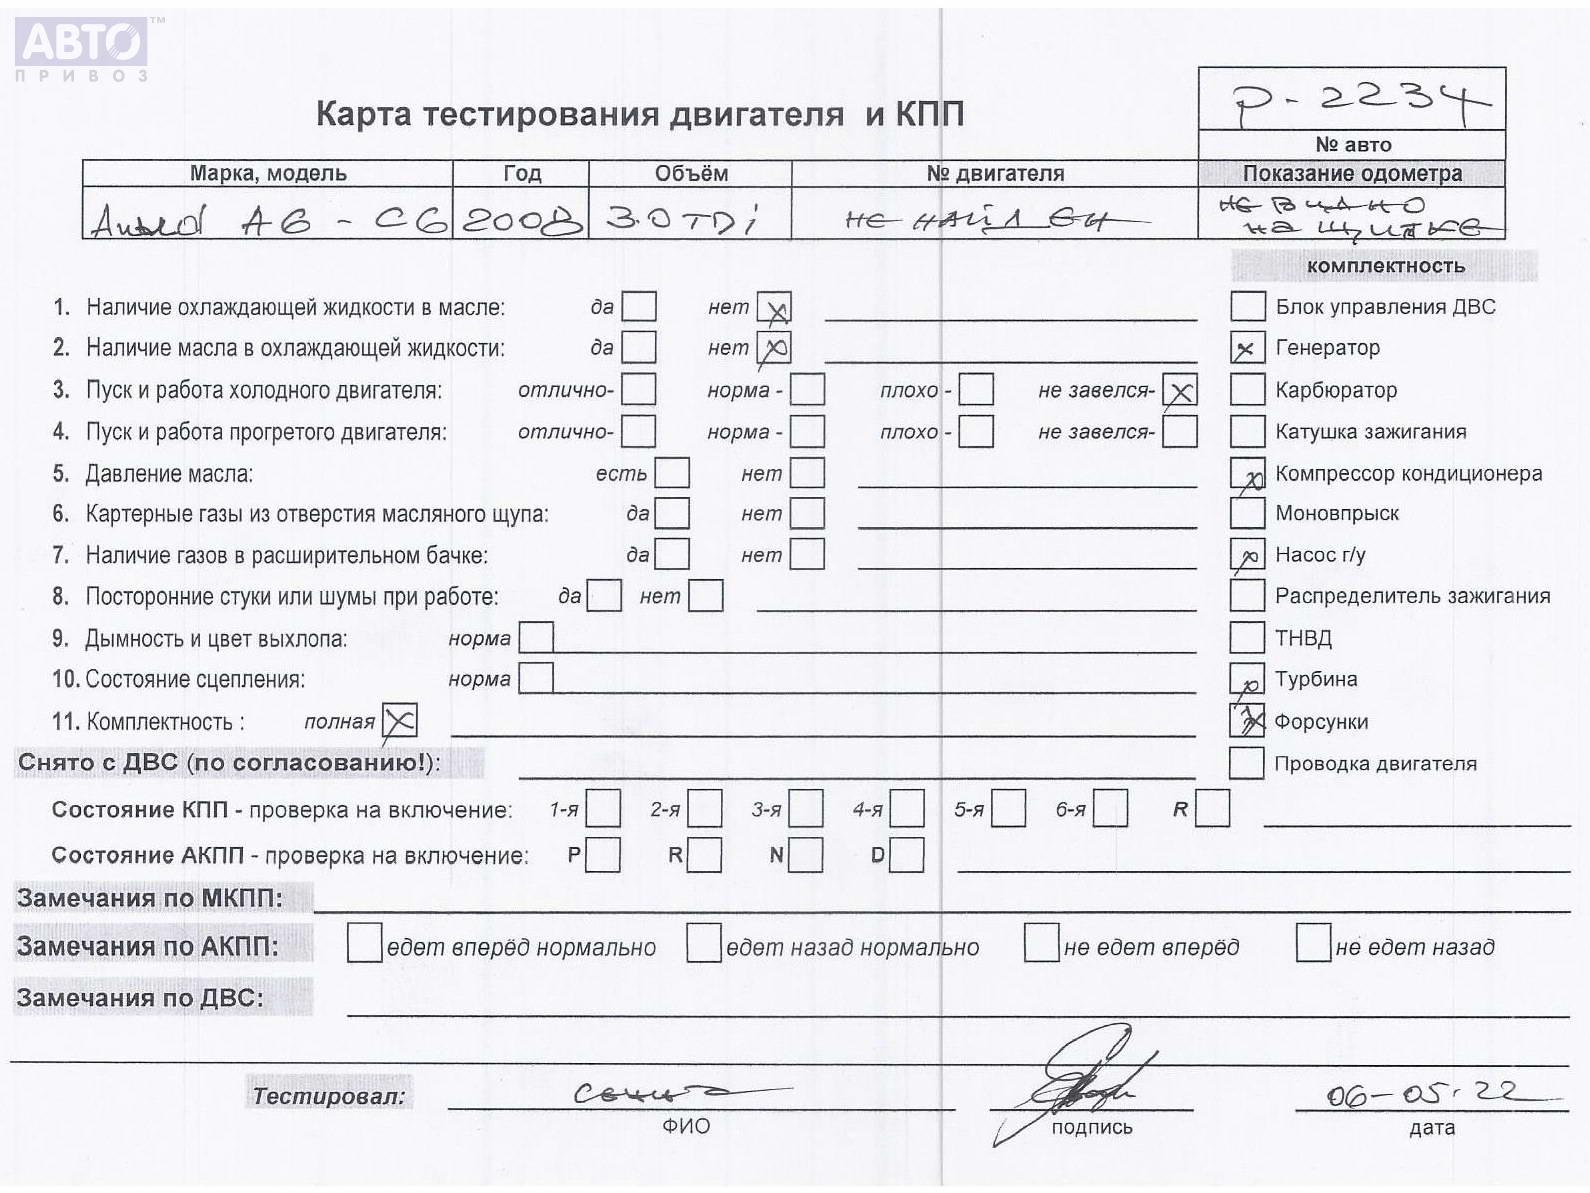 АВТО ™
ПРИВОЗ
P-2234
Карта тестирования двигателя и КПП
№ авто
Марка, модель Год Объём № двигателя Показание одометра
A6 - C6 2008 3.0 TDi не найден не видно
на щитке
комплектность
1. Наличие охлаждающей жидкости в масле: да нет x Блок управления ДВС
2. Наличие масла в охлаждающей жидкости: да нет x x Генератор
3. Пуск и работа холодного двигателя: отлично- норма - плохо - не завелся- x Карбюратор
4. Пуск и работа прогретого двигателя: отлично- норма - плохо - не завелся- Катушка зажигания
5. Давление масла: есть нет x Компрессор кондиционера
6. Картерные газы из отверстия масляного щупа: да нет Моновпрыск
7. Наличие газов в расширительном бачке: да нет x Насос г/у
8. Посторонние стуки или шумы при работе: да нет Распределитель зажигания
9. Дымность и цвет выхлопа: норма ТНВД
10. Состояние сцепления: норма x Турбина
11. Комплектность : полная x x Форсунки
Снято с ДВС (по согласованию!): Проводка двигателя
Состояние КПП - проверка на включение: 1-я 2-я 3-я 4-я 5-я 6-я R
Состояние АКПП - проверка на включение: P R N D
Замечания по МКПП:
Замечания по АКПП: едет вперёд нормально едет назад нормально не едет вперёд не едет назад
Замечания по ДВС:
Тестировал: 06-05.22
ФИО подпись дата